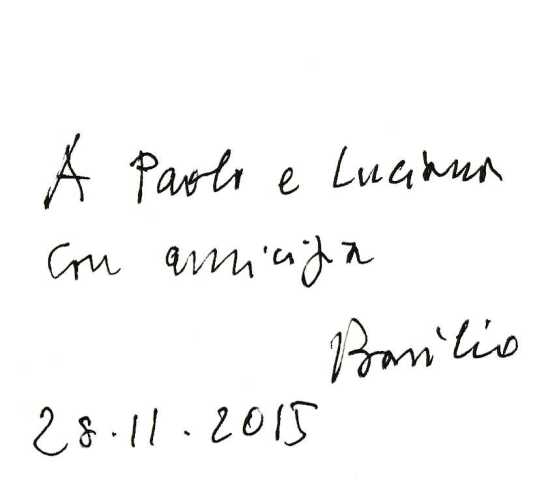 A Paolo e Luciana
con amicizia
Basilio
28.11.2015